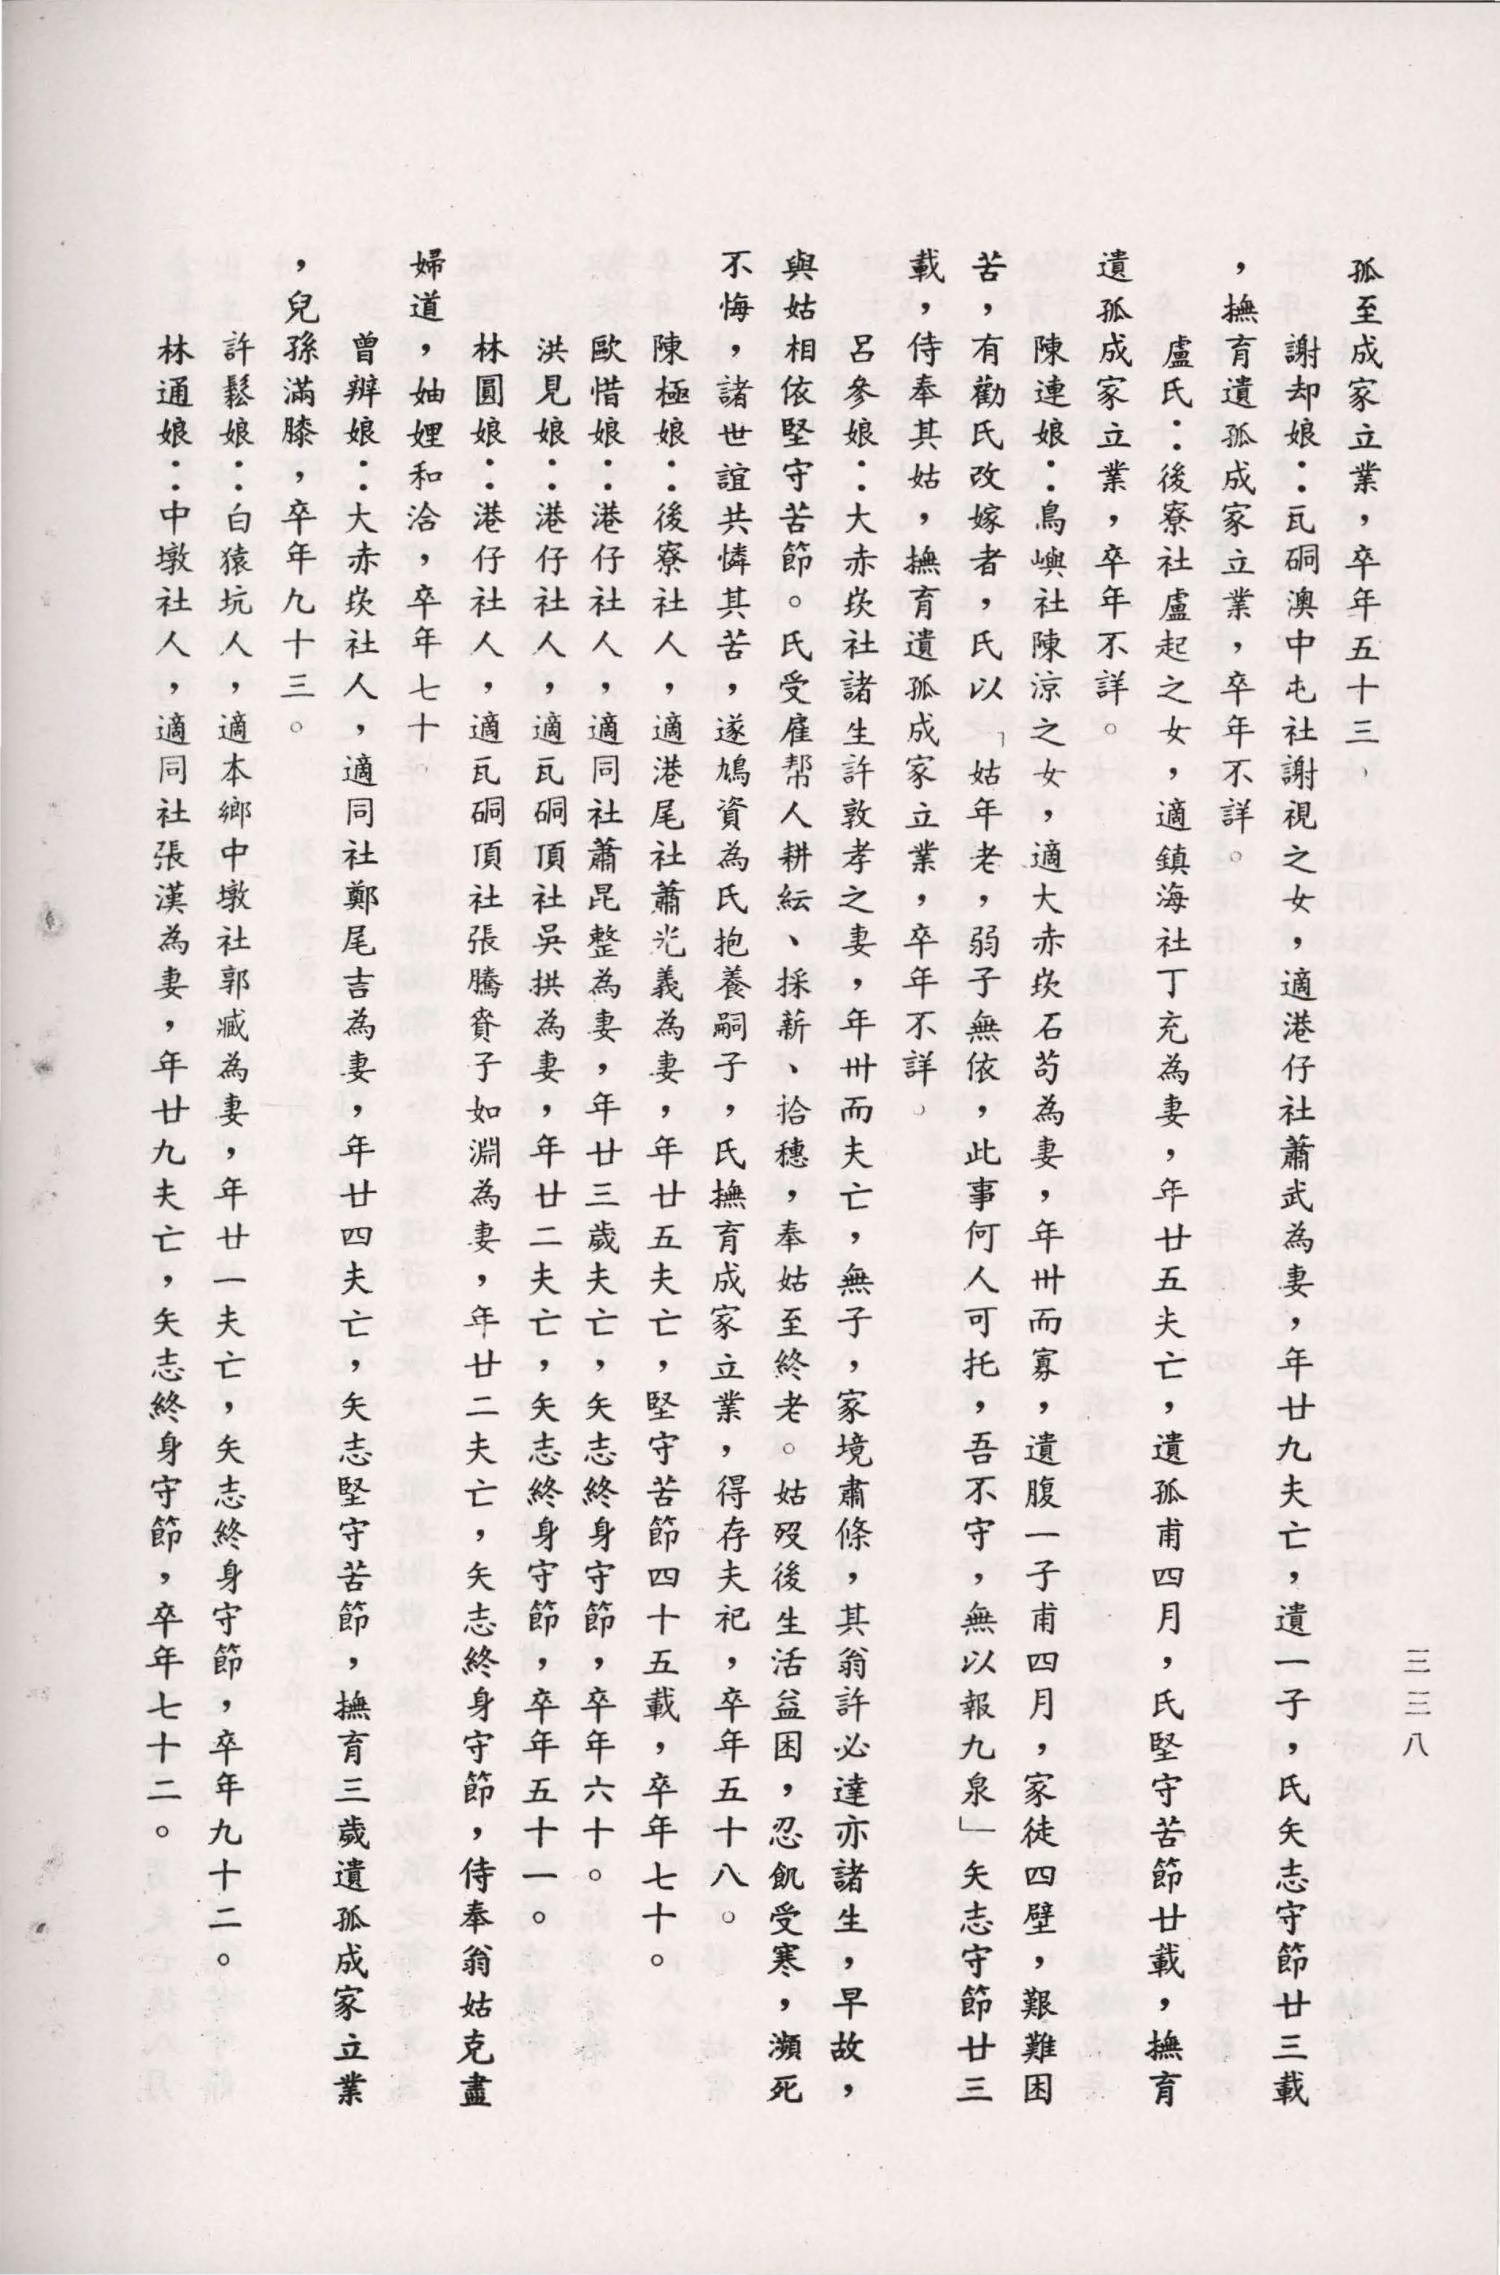 三三八
孤至成家立業，卒年五十三、
謝却娘：瓦硐澳中屯社謝視之女，適港仔社蕭武為妻，年廿九夫亡，遺一子，氏矢志守節廿三載
，撫育遺孤成家立業，卒年不詳。
盧氏：後寮社盧起之女，適鎮海社丁充為妻，年廿五夫亡，遺孤甫四月，氏堅守苦節廿載，撫育
遺孤成家立業，卒年不詳。
陳連娘：鳥嶼社陳涼之女，適大赤崁石苟為妻，年卅而寡，遺腹一子甫四月，家徒四壁，艱難困
苦，有勸氏改嫁者，氏以「姑年老，弱子無依，此事何人可托，吾不守，無以報九泉」矢志守節廿三
載，侍奉其姑，撫育遺孤成家立業，卒年不詳。
呂參娘：大赤崁社諸生許敦孝之妻，年卅而夫亡，無子，家境肅條，其翁許必達亦諸生，早故，
與姑相依堅守苦節。氏受雇帮人耕紜、採薪、拾穗，奉姑至終老。姑歿後生活益困，忍飢受寒，瀕死
不悔，諸世誼共憐其苦，遂鳩資為氏抱養嗣子，氏撫育成家立業，得存夫祀，卒年五十八。
陳極娘：後寮社人，適港尾社蕭光義為妻，年廿五夫亡，堅守苦節四十五載，卒年七十。
歐惜娘：港仔社人，適同社蕭昆整為妻，年廿三歲夫亡，矢志終身守節，卒年六十。
洪見娘：港仔社人，適瓦硐頂社吳拱為妻，年廿二夫亡，矢志終身守節，卒年五十一。
林圓娘：港仔社人，適瓦硐頂社張騰賚子如淵為妻，年廿二夫亡，矢志終身守節，侍奉翁姑克盡
婦道，妯娌和洽，卒年七十。
曾辦娘：大赤崁社人，適同社鄭尾吉為妻，年廿四夫亡，矢志堅守苦節，撫育三歲遺孤成家立業
，兒孫滿膝，卒年九十三。
許鬆娘：白猿坑人，適本鄉中墩社郭臧為妻，年廿一夫亡，矢志終身守節，卒年九十二。
林通娘：中墩社人，適同社張漢為妻，年廿九夫亡，矢志終身守節，卒年七十二。